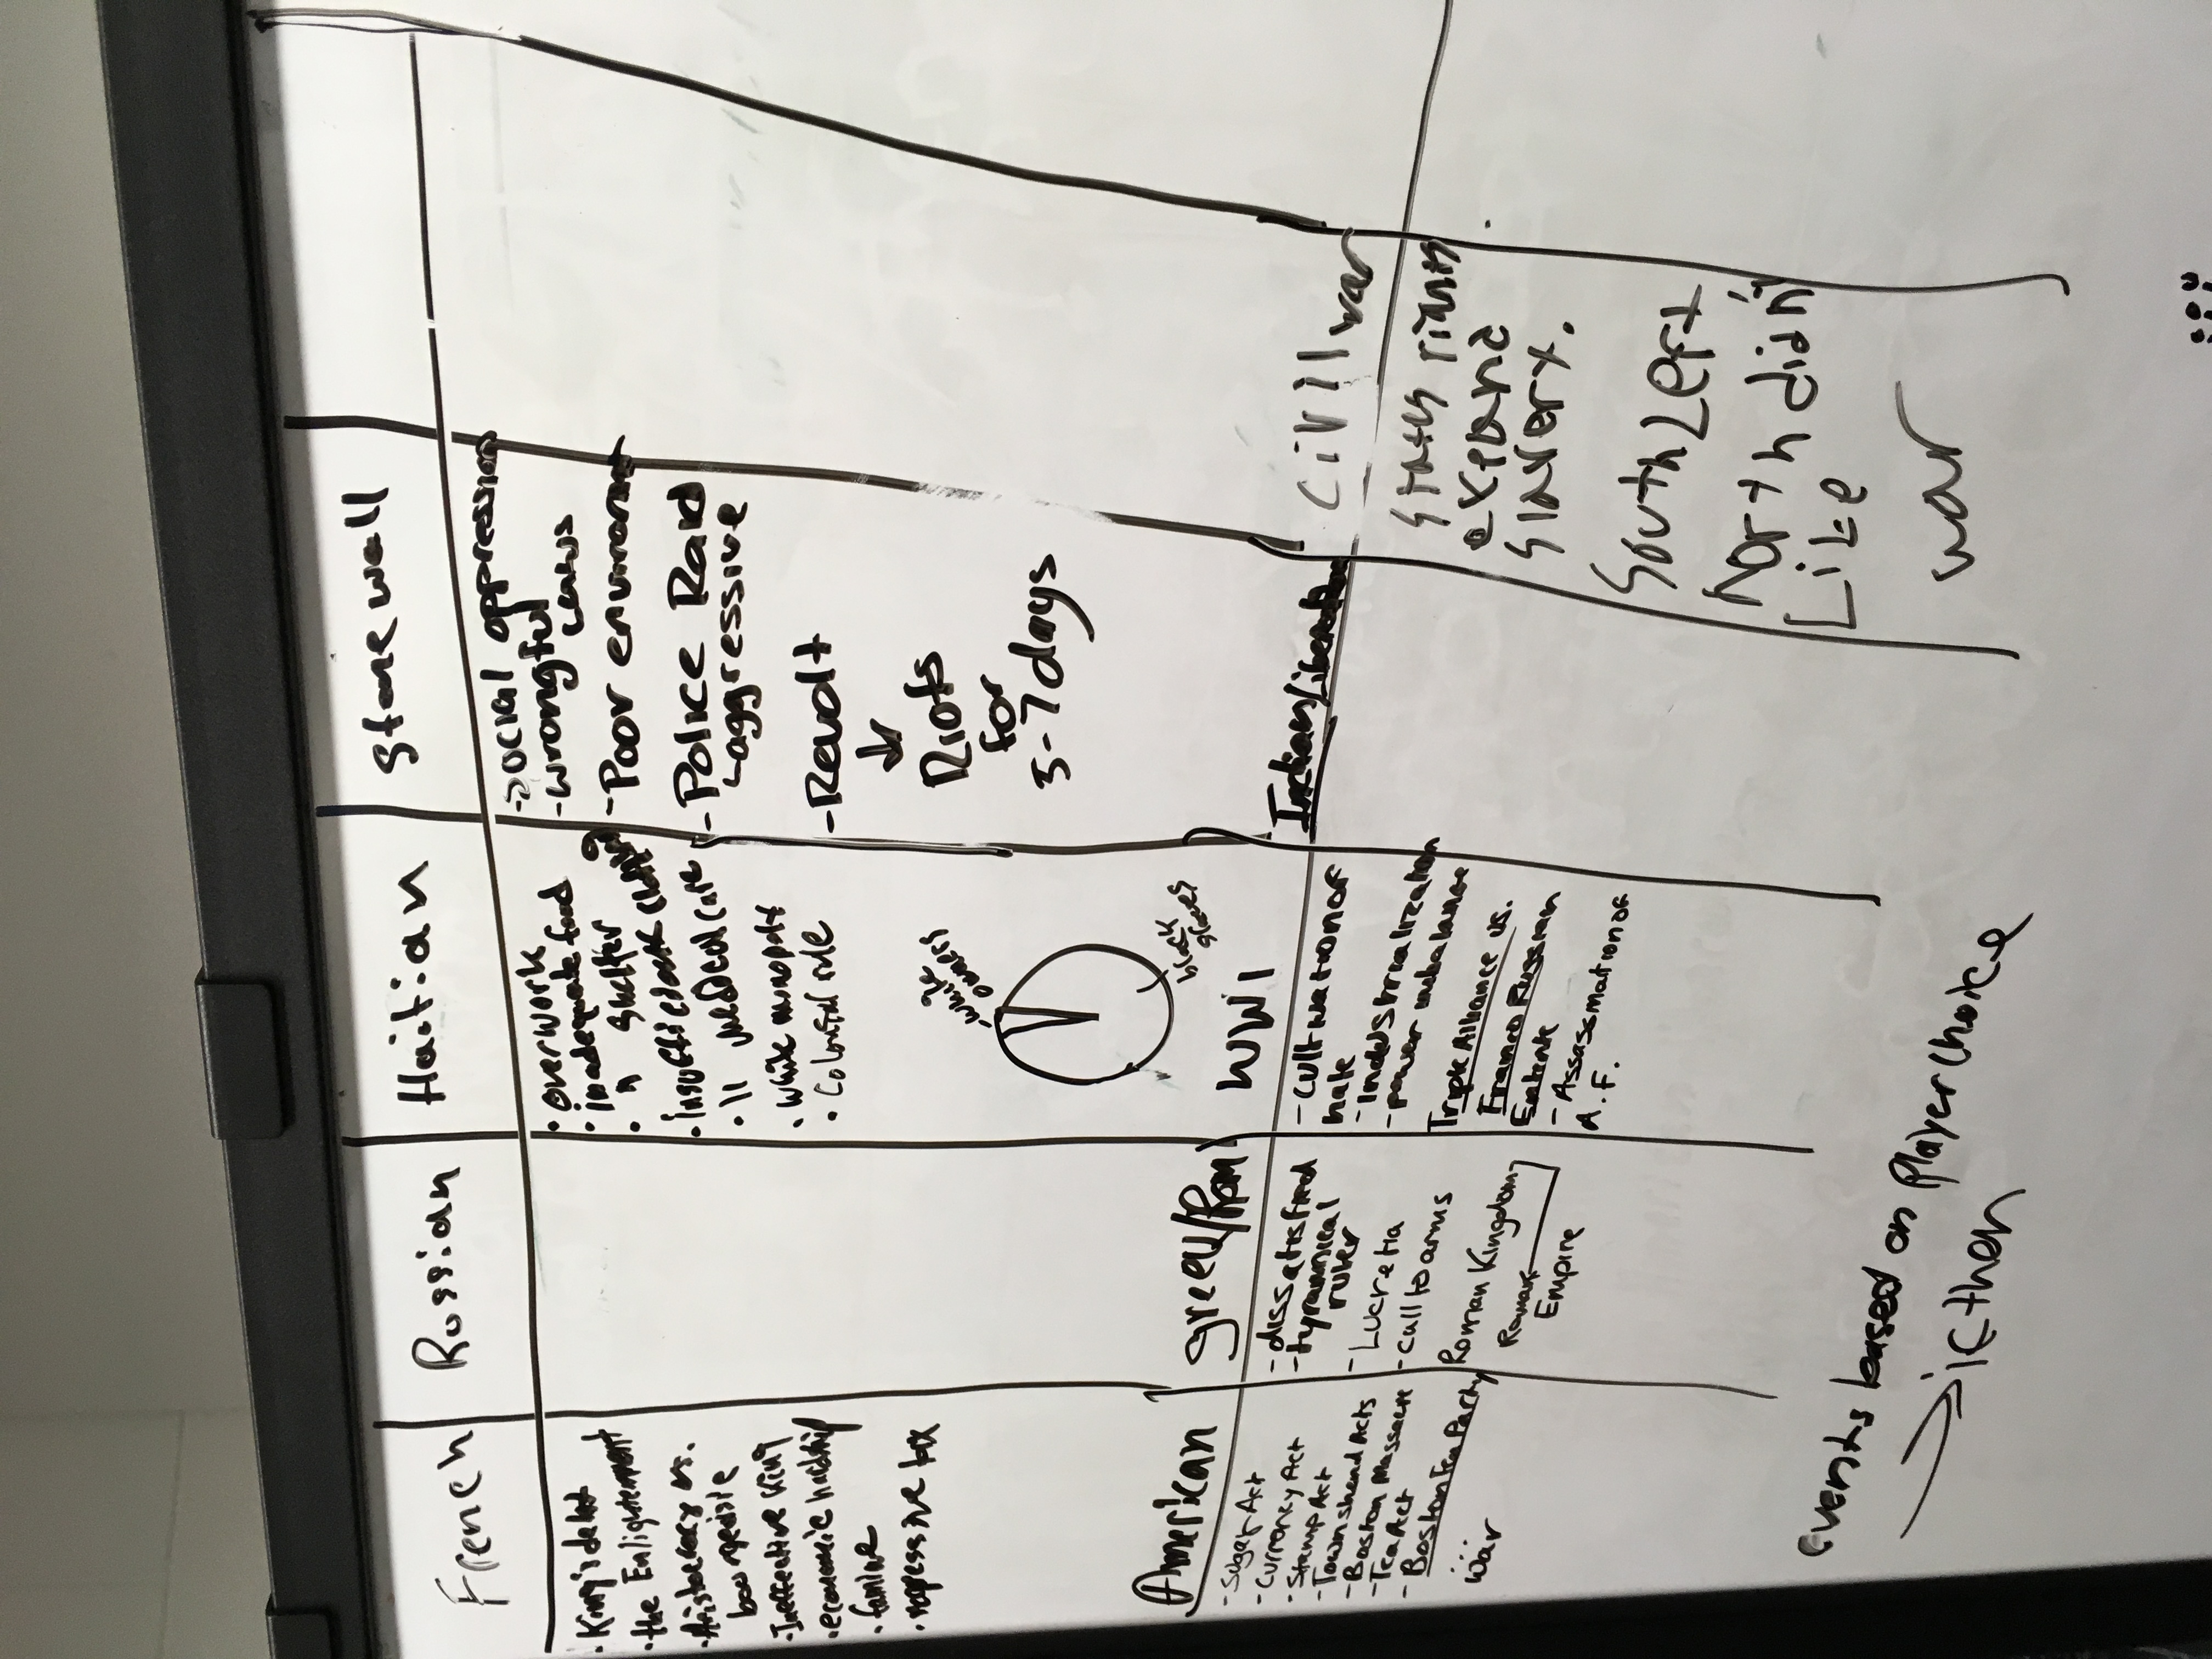 French
Russian
Haitian
Stonewall
· King's debt
· the Enlightenment
· Aristocracy vs.
bourgeoisie
· Ineffective King
· economic hardship
· famine
· oppressive tax
· overwork
· inadequate food
· " shelter
· insufficient clothing
· " medical care
· white monopoly
· Colonial rule
- white
owners
black
slaves
- social oppression
- wrongful
laws
- Poor environment
- Police Raid
aggressive
- Revolt
↓
Riots
for
5-7 days
American
- Sugar Act
- Currency Act
- Stamp Act
- Townshend Acts
- Boston Massacre
- Tea Act
- Boston Tea Party
...
war
greek/Rom
- dissatisfied
- tyrannical
ruler
- Lucretia
- call to arms
Roman Kingdom
Roman
Empire
WW1
- cultivation of
hate
- Industrialization
- power imbalance
Triple Alliance vs.
Franco Russian
Entente
- Assassination of
A.F.
Indian/Liberation
civil war
states rights
expand
slavery.
South Left
North didn't
Like
war
events based on Player choice
if then